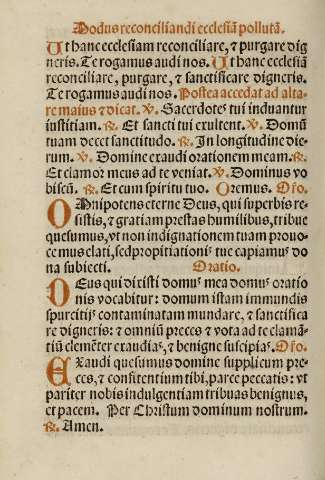 Modus reconciliandi ecclesiā pollutā.
Ut hanc ecclesiam reconciliare, ⁊ purgare dig
neris. Te rogamus audi nos. Ut hanc ecclesiā
reconciliare, purgare, ⁊ sanctificare digneris.
Te rogamus audi nos. Postea accedat ad alta-
re maius ⁊ dicat. ℣. Sacerdotes tui induantur
iustitiam. ℟. Et sancti tui exultent. ℣. Domū
tuam decet sanctitudo. ℟. In longitudine die
rum. ℣. Domine exaudi orationem meam. ℟.
Et clamor meus ad te veniat. ℣. Dominus vo
biscū. ℟. Et cum spiritu tuo. Oremus. Oŕo.
OMnipotens eterne Deus, qui superbis re-
sistis, ⁊ gratiam prestas humilibus, tribue
quesumus, vt non indignationem tuam prouo-
ce mus elati, sed propitiationis tue capiamus do
na subiecti. Oratio.
DEus qui dixisti domus mea domus oratio
nis vocabitur: domum istam immundis
spurcitijs contaminatam mundare, ⁊ sanctifica
re digneris: ⁊ omniū preces ⁊ vota ad te clamā-
tiū clemēter exaudias, ⁊ benigne suscipias. Oŕo.
EXaudi quesumus domine supplicum pre-
ces, ⁊ confitentium tibi, parce peccatis: vt
pariter nobis indulgentiam tribuas benignus,
et pacem. Per Christum dominum nostrum.
℟. Amen.